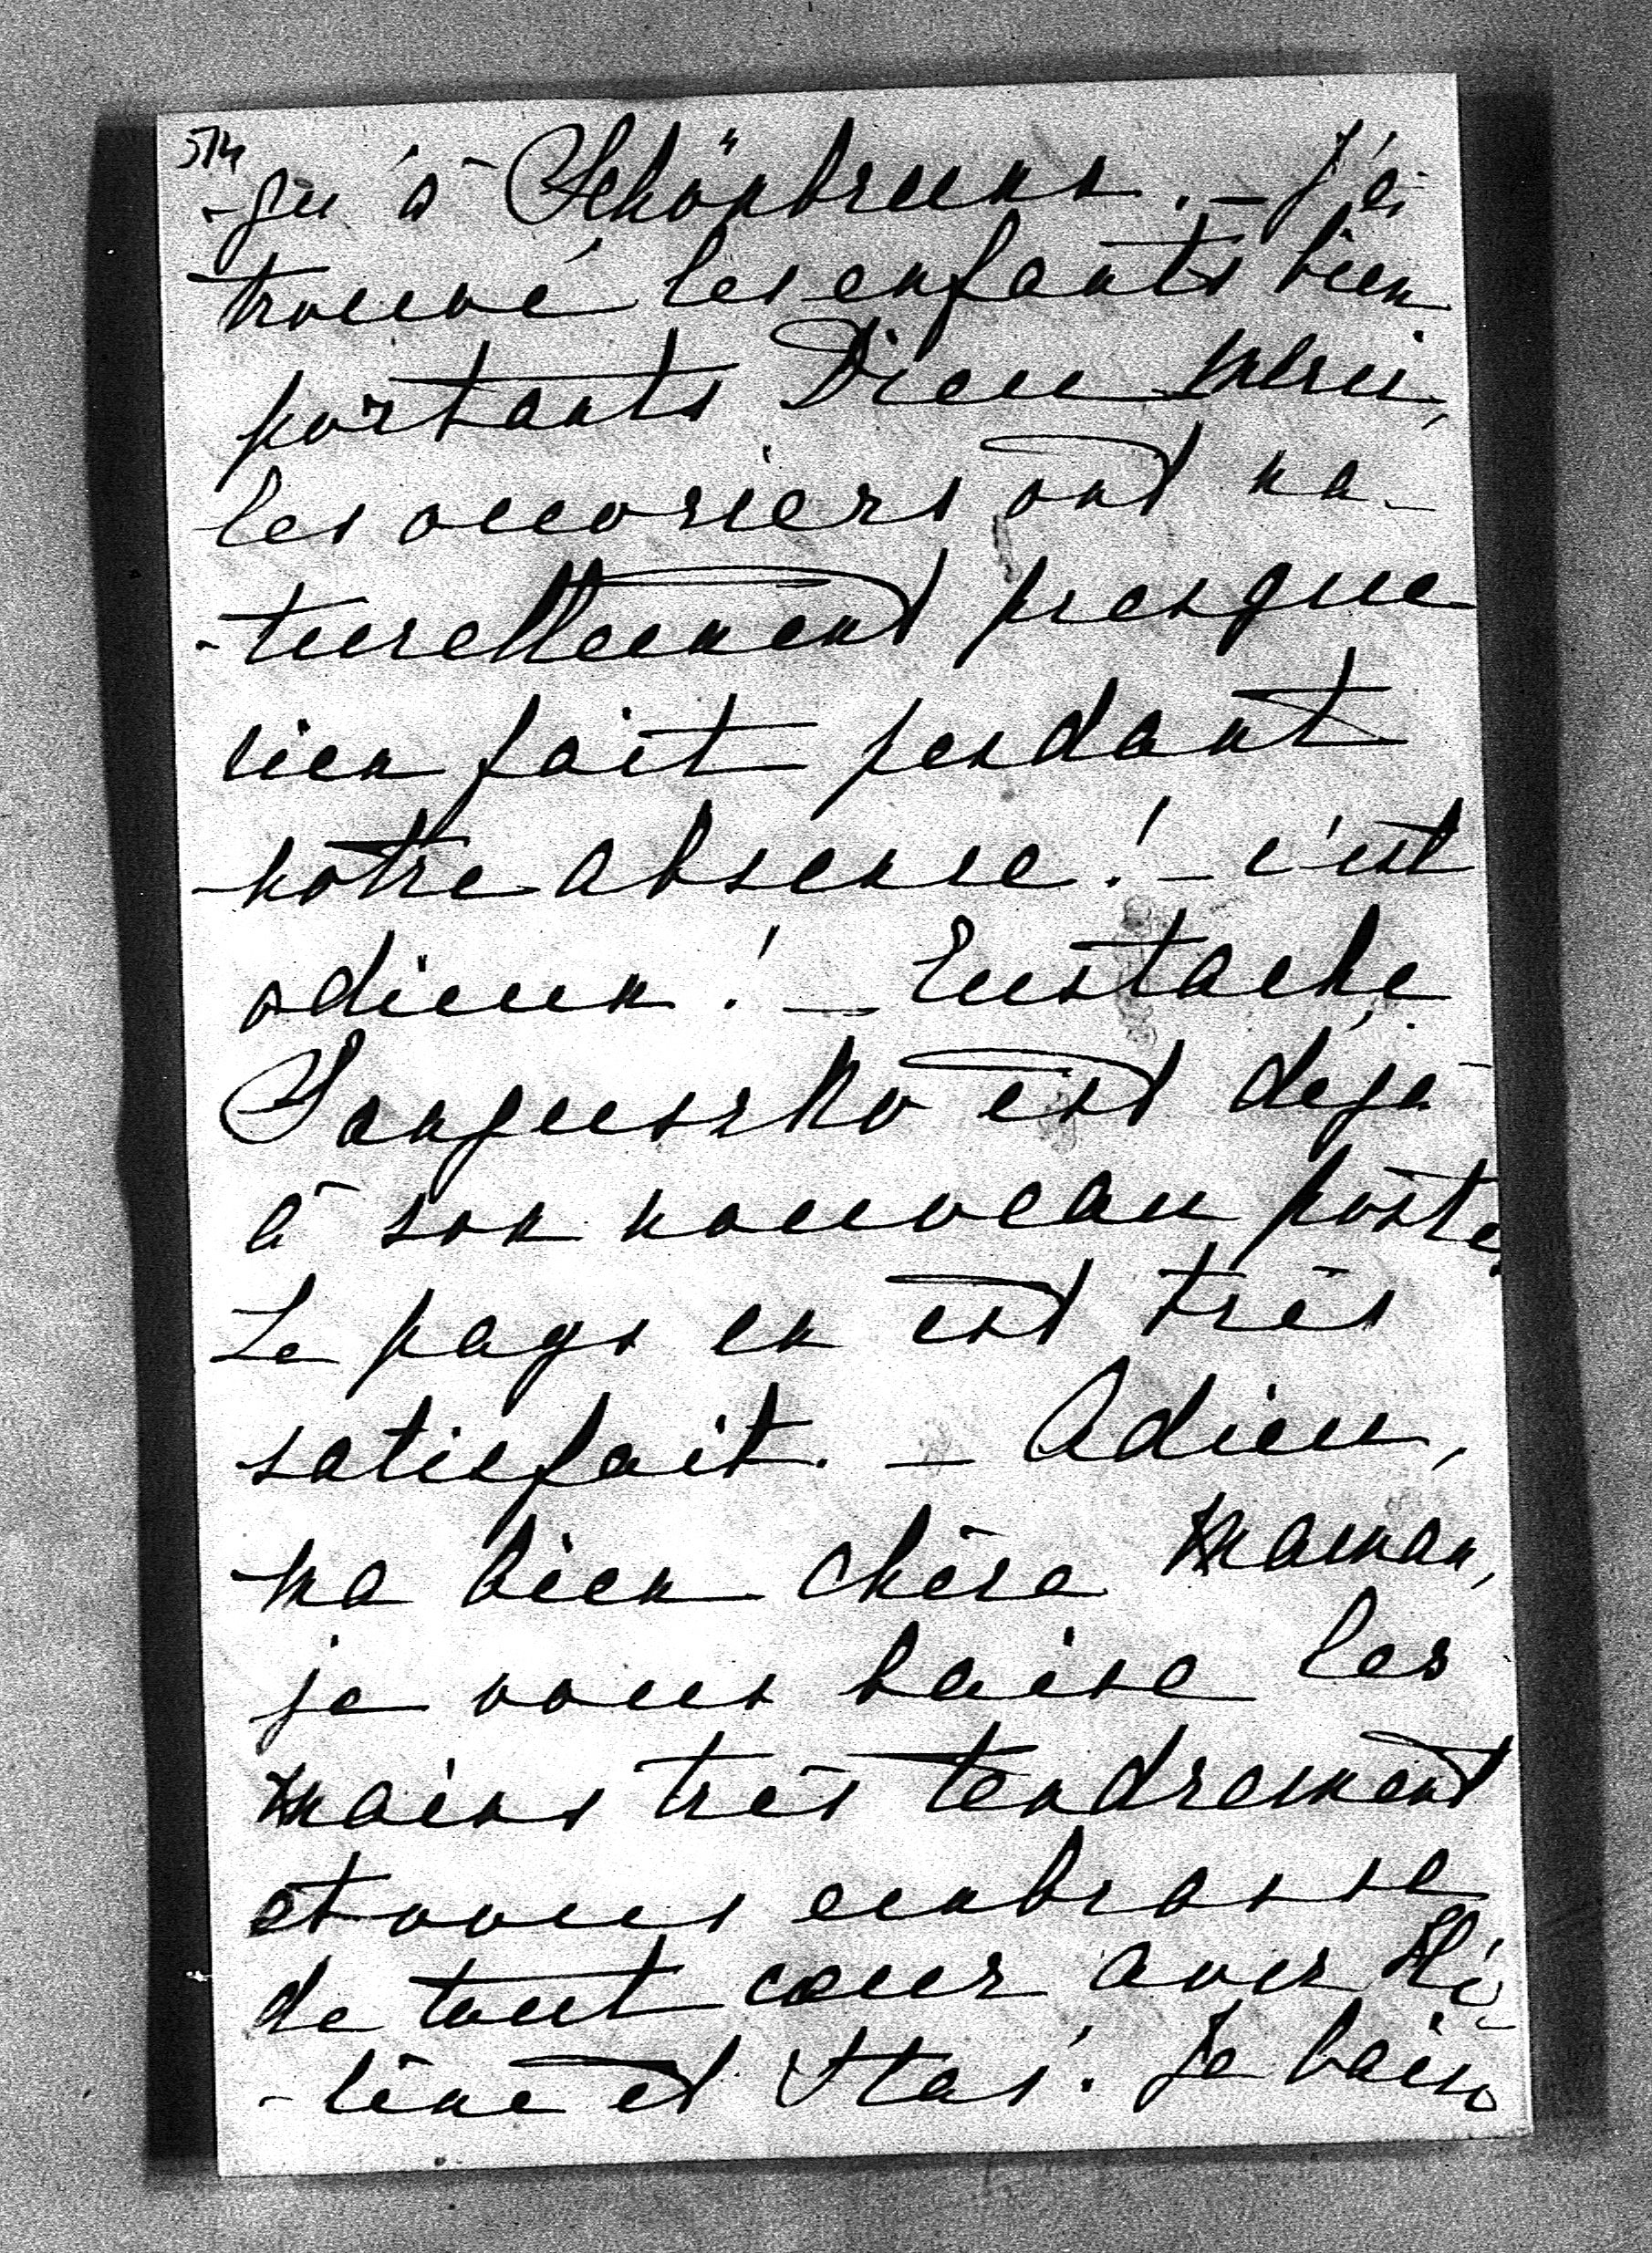 574
-qu'à Schönbrunn. _ J'ai
trouvé les enfants bien
portants Dieu merci,
les ouvriers ont na-
-turellement presque
rien fait pendant
notre absence! _ c'est
odieux! _ Eustache
Sanguszko est déjà
à son nouveau poste,
Le pays en est très
satisfait. _ Adieu,
ma bien chère Maman,
je vous baise les
mains très tendrement
et vous embrasse
de tout cœur avec Hé-
-lène et Staś. Je baise